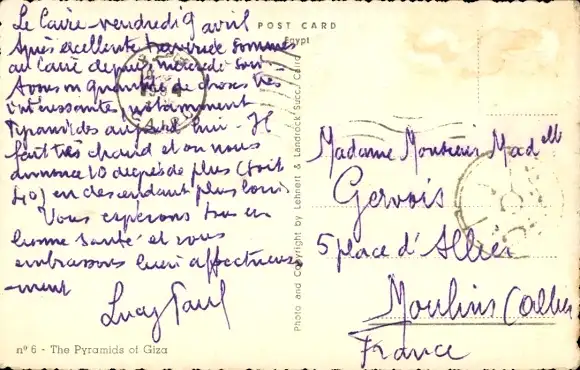 Le Caire - vendredi 9 avril
Après excellente traversée sommes
au Caire depuis mercredi soir
Avons vu quantité de choses très
intéressantes, notamment
Pyramides aujourd'hui - Il
fait très chaud et on nous
annonce 10 degrés de plus (soit
40) en descendant plus loin.
Vous espérons tous en
bonne santé et vous
embrassons bien affectueuse
-ment
Lucy Paul
nº 6 - The Pyramids of Giza
POST CARD
Egypt
Photo and Copyright by Lehnert & Landrock Succ. Cairo
CAIRO
Madame Monsieur Madelle
Gervois
5 place d'Allier
Moulins (Allier
France